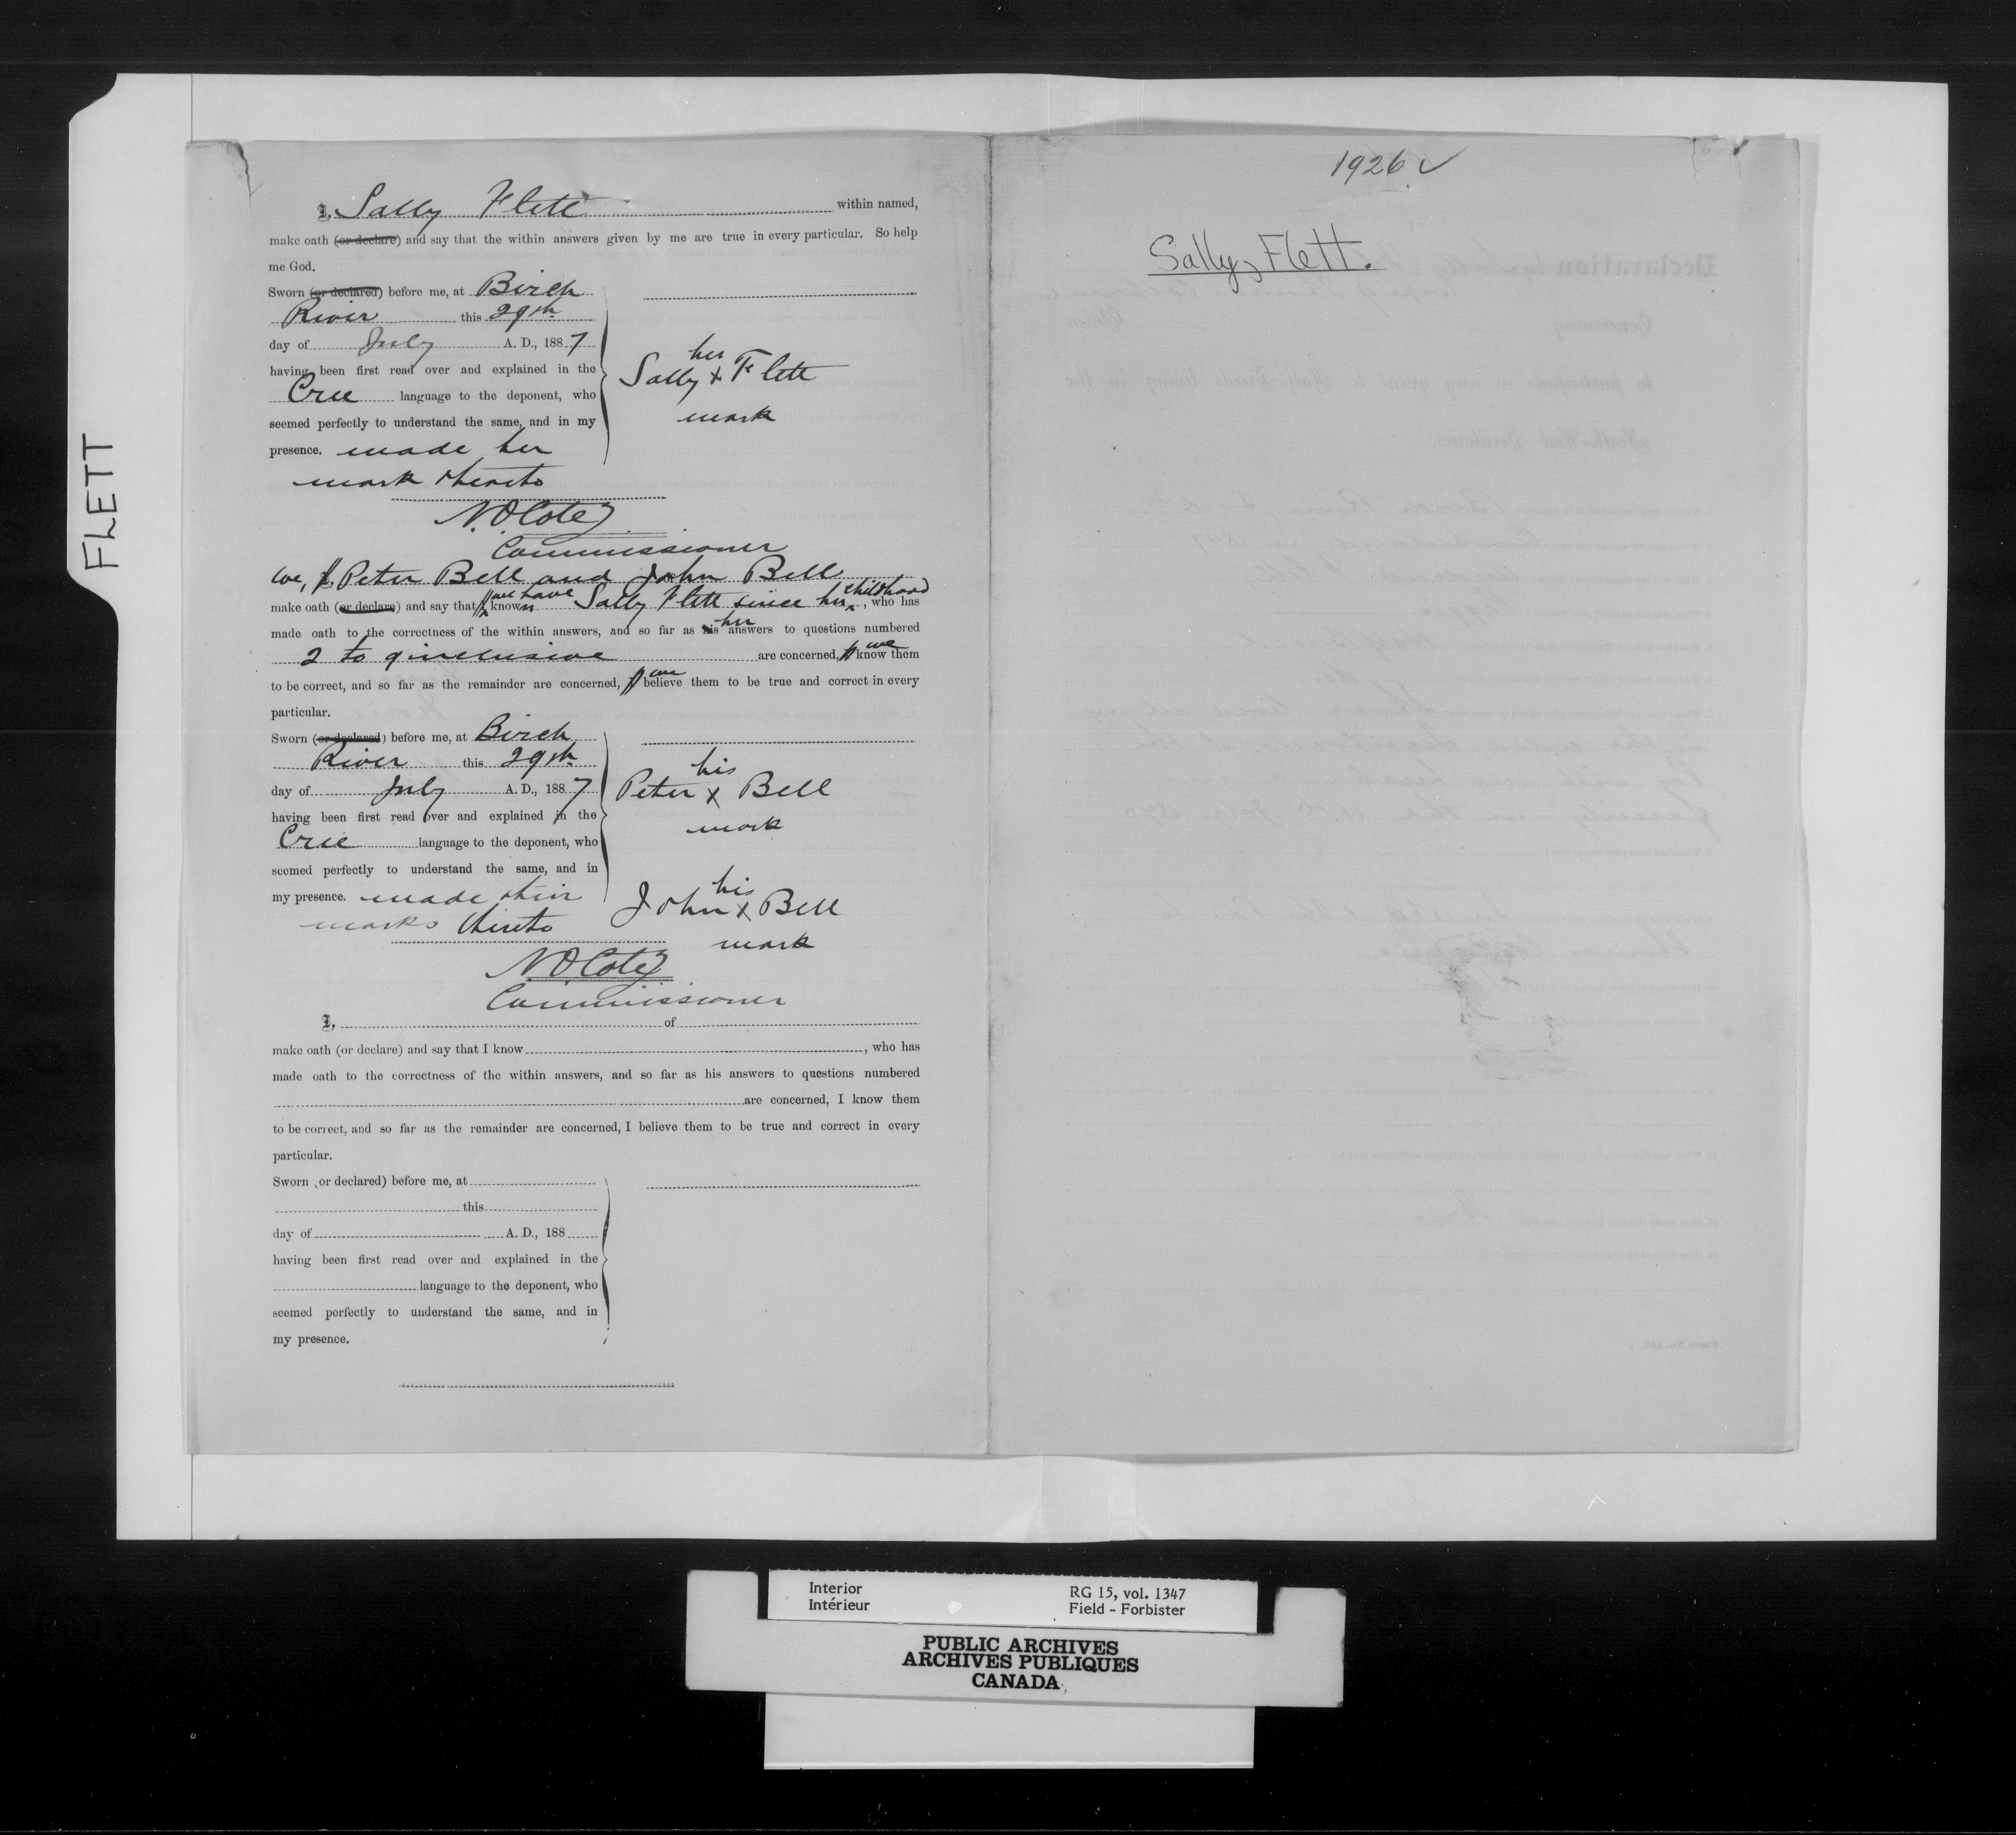 FLETT
I, Sally Flett within named,
make oath (or declare) and say that the within answers given by me are true in every particular. So help
me God.
Sworn (or declared) before me, at Birch
River this 29th
day of July A. D., 1887
having been first read over and explained in the
Cree language to the deponent, who
seemed perfectly to understand the same, and in my
presence. made her
mark thereto
her
Sally x Flett
mark
N.O. Coté
Commissioner
We, I, Peter Bell and John Bell
make oath (or declare) and say that I we have known Sally Flett since her childhood, who has
made oath to the correctness of the within answers, and so far as his her answers to questions numbered
2 to 9 inclusive are concerned, I we know them
to be correct, and so far as the remainder are concerned, I we believe them to be true and correct in every
particular.
Sworn (or declared) before me, at Birch
River this 29th
day of July A. D., 1887
having been first read over and explained in the
Cree language to the deponent, who
seemed perfectly to understand the same, and in
my presence. made their
marks thereto
his
Peter x Bell
mark
his
John x Bell
mark
N.O. Coté
Commissioner
I, of
make oath (or declare) and say that I know , who has
made oath to the correctness of the within answers, and so far as his answers to questions numbered
are concerned, I know them
to be correct, and so far as the remainder are concerned, I believe them to be true and correct in every
particular.
Sworn (or declared) before me, at
this
day of A. D., 188
having been first read over and explained in the
language to the deponent, who
seemed perfectly to understand the same, and in
my presence.
1926 ✓
Sally Flett.
Interior RG 15, vol. 1347
Intérieur Field - Forbister
PUBLIC ARCHIVES
ARCHIVES PUBLIQUES
CANADA